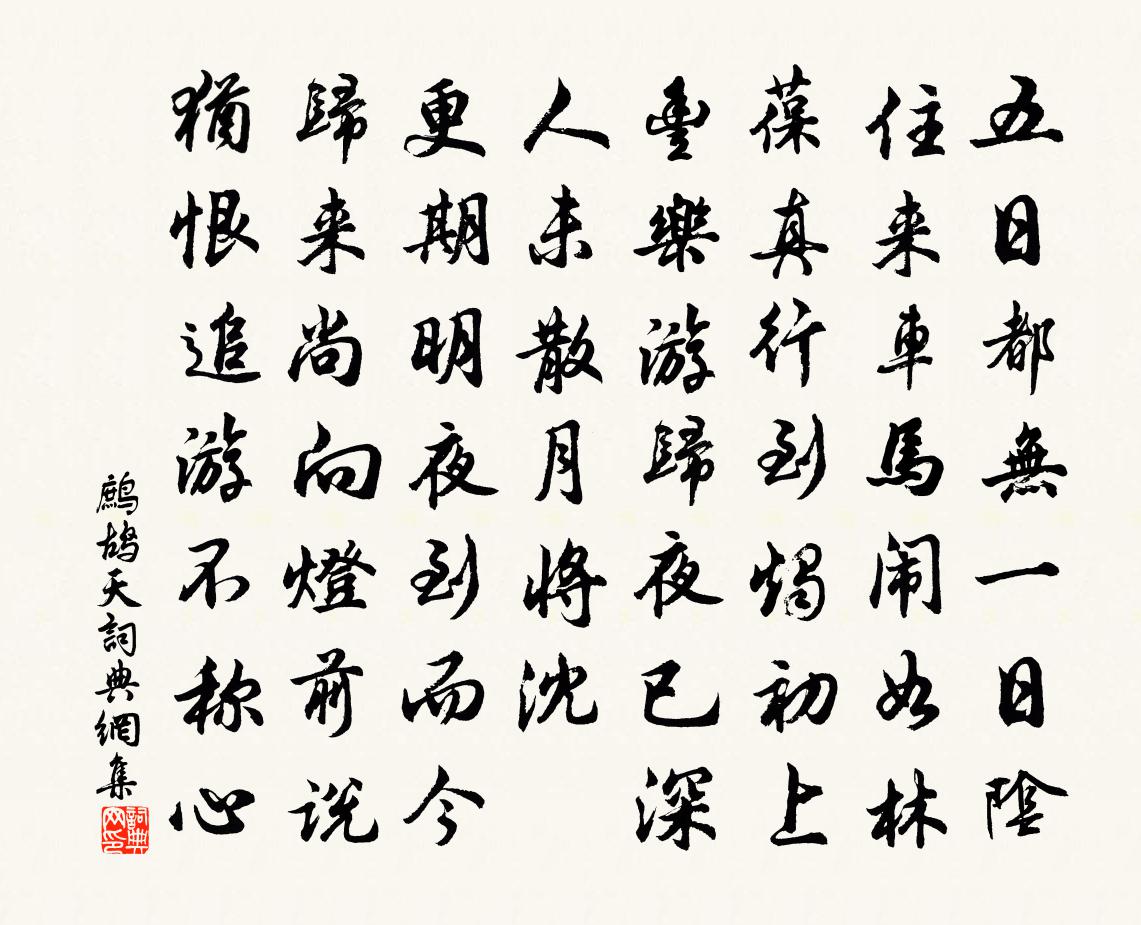 五日都無一日陰
住来車馬闹如林
葆真行到燭初上
豊樂游歸夜已深
人未散月將沈
更期明夜到而今
歸来尚向燈前説
猶恨追游不称心
鷓鴣天詞典網集
詞典網印